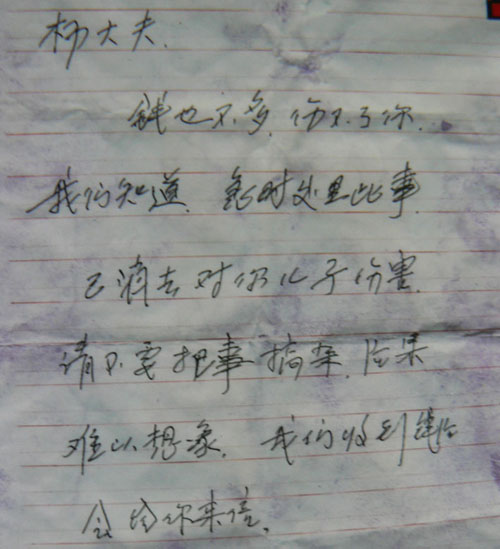 杨大夫.
钱也不多，伤不了你...
我们知道，急时处里此事.
已消去对你儿子伤害.
请不要把事搞杂，后果
难以想象，我们收到钱后
会给你来信.